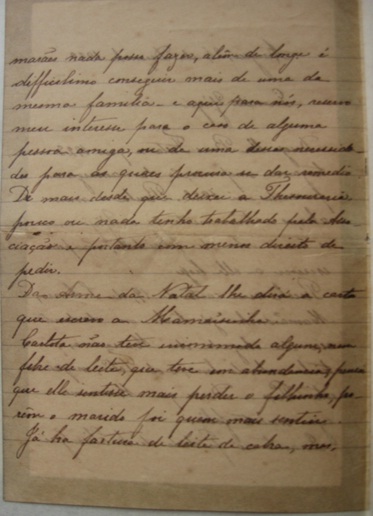 mações nada posso fazer, além de longe é
difficilimo conseguir mais de uma da
mesma familia — e aqui para nós, reservo
meu interesse para o caso de alguma
pessoa amiga, ou de uma dessas necessida-
des para as quaes procura-se dar remedio.
De mais desde que deixei a Thesouraria
pouco ou nada tenho trabalhado pela Asso-
ciação e portanto com menos direito de
pedir.
Da Anna da Natal lhe dirá a carta
que escrevo a Mamãisinha.
Carlota não teve incommodo algum, nem
febre de leite, que teve em abundancia, parece
que ella sentisse mais perder o filhinho, po-
rém o marido foi quem mais sentiu.
Já ha fartura de leite de cabra, mas,